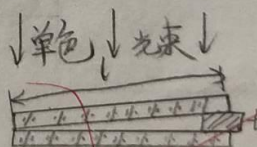 单色光束
L
t